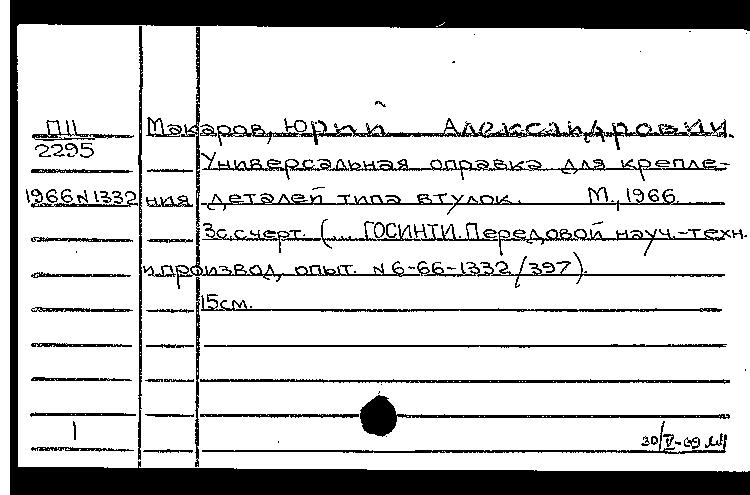 П11 Макаров, Юрий Александрович.
2295 Универсальная оправка для крепле-
1966 N 1332 ния деталей типа втулок. М., 1966.
3с. с черт. (... ГОСИНТИ. Передовой науч.-техн.
и производ, опыт. N 6-66-1332/397).
15см.
1
30/V-69